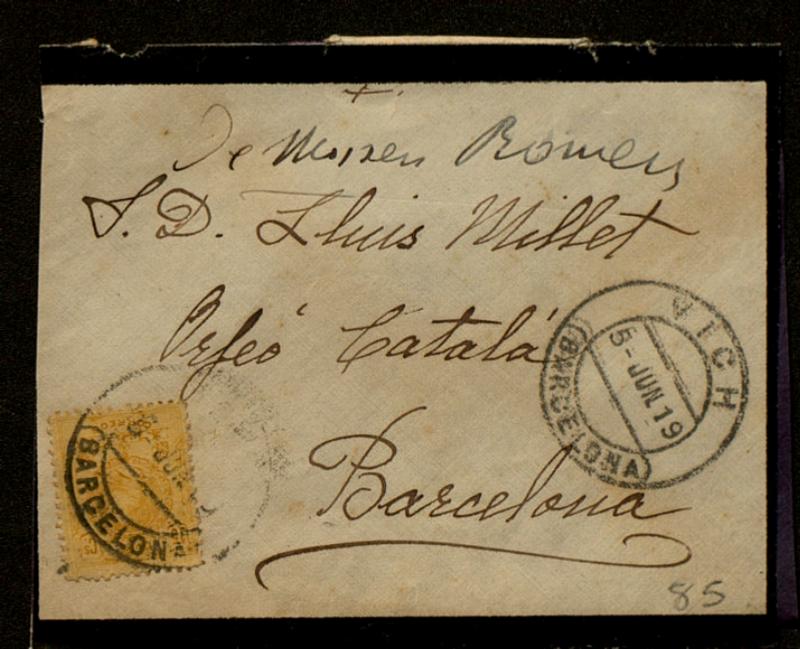 De Mossen Romeu
S. D. Lluis Millet
Orfeó Catalá
Barcelona
VICH
5-JUN.19
(BARCELONA)
JUN
(BARCELONA)
85